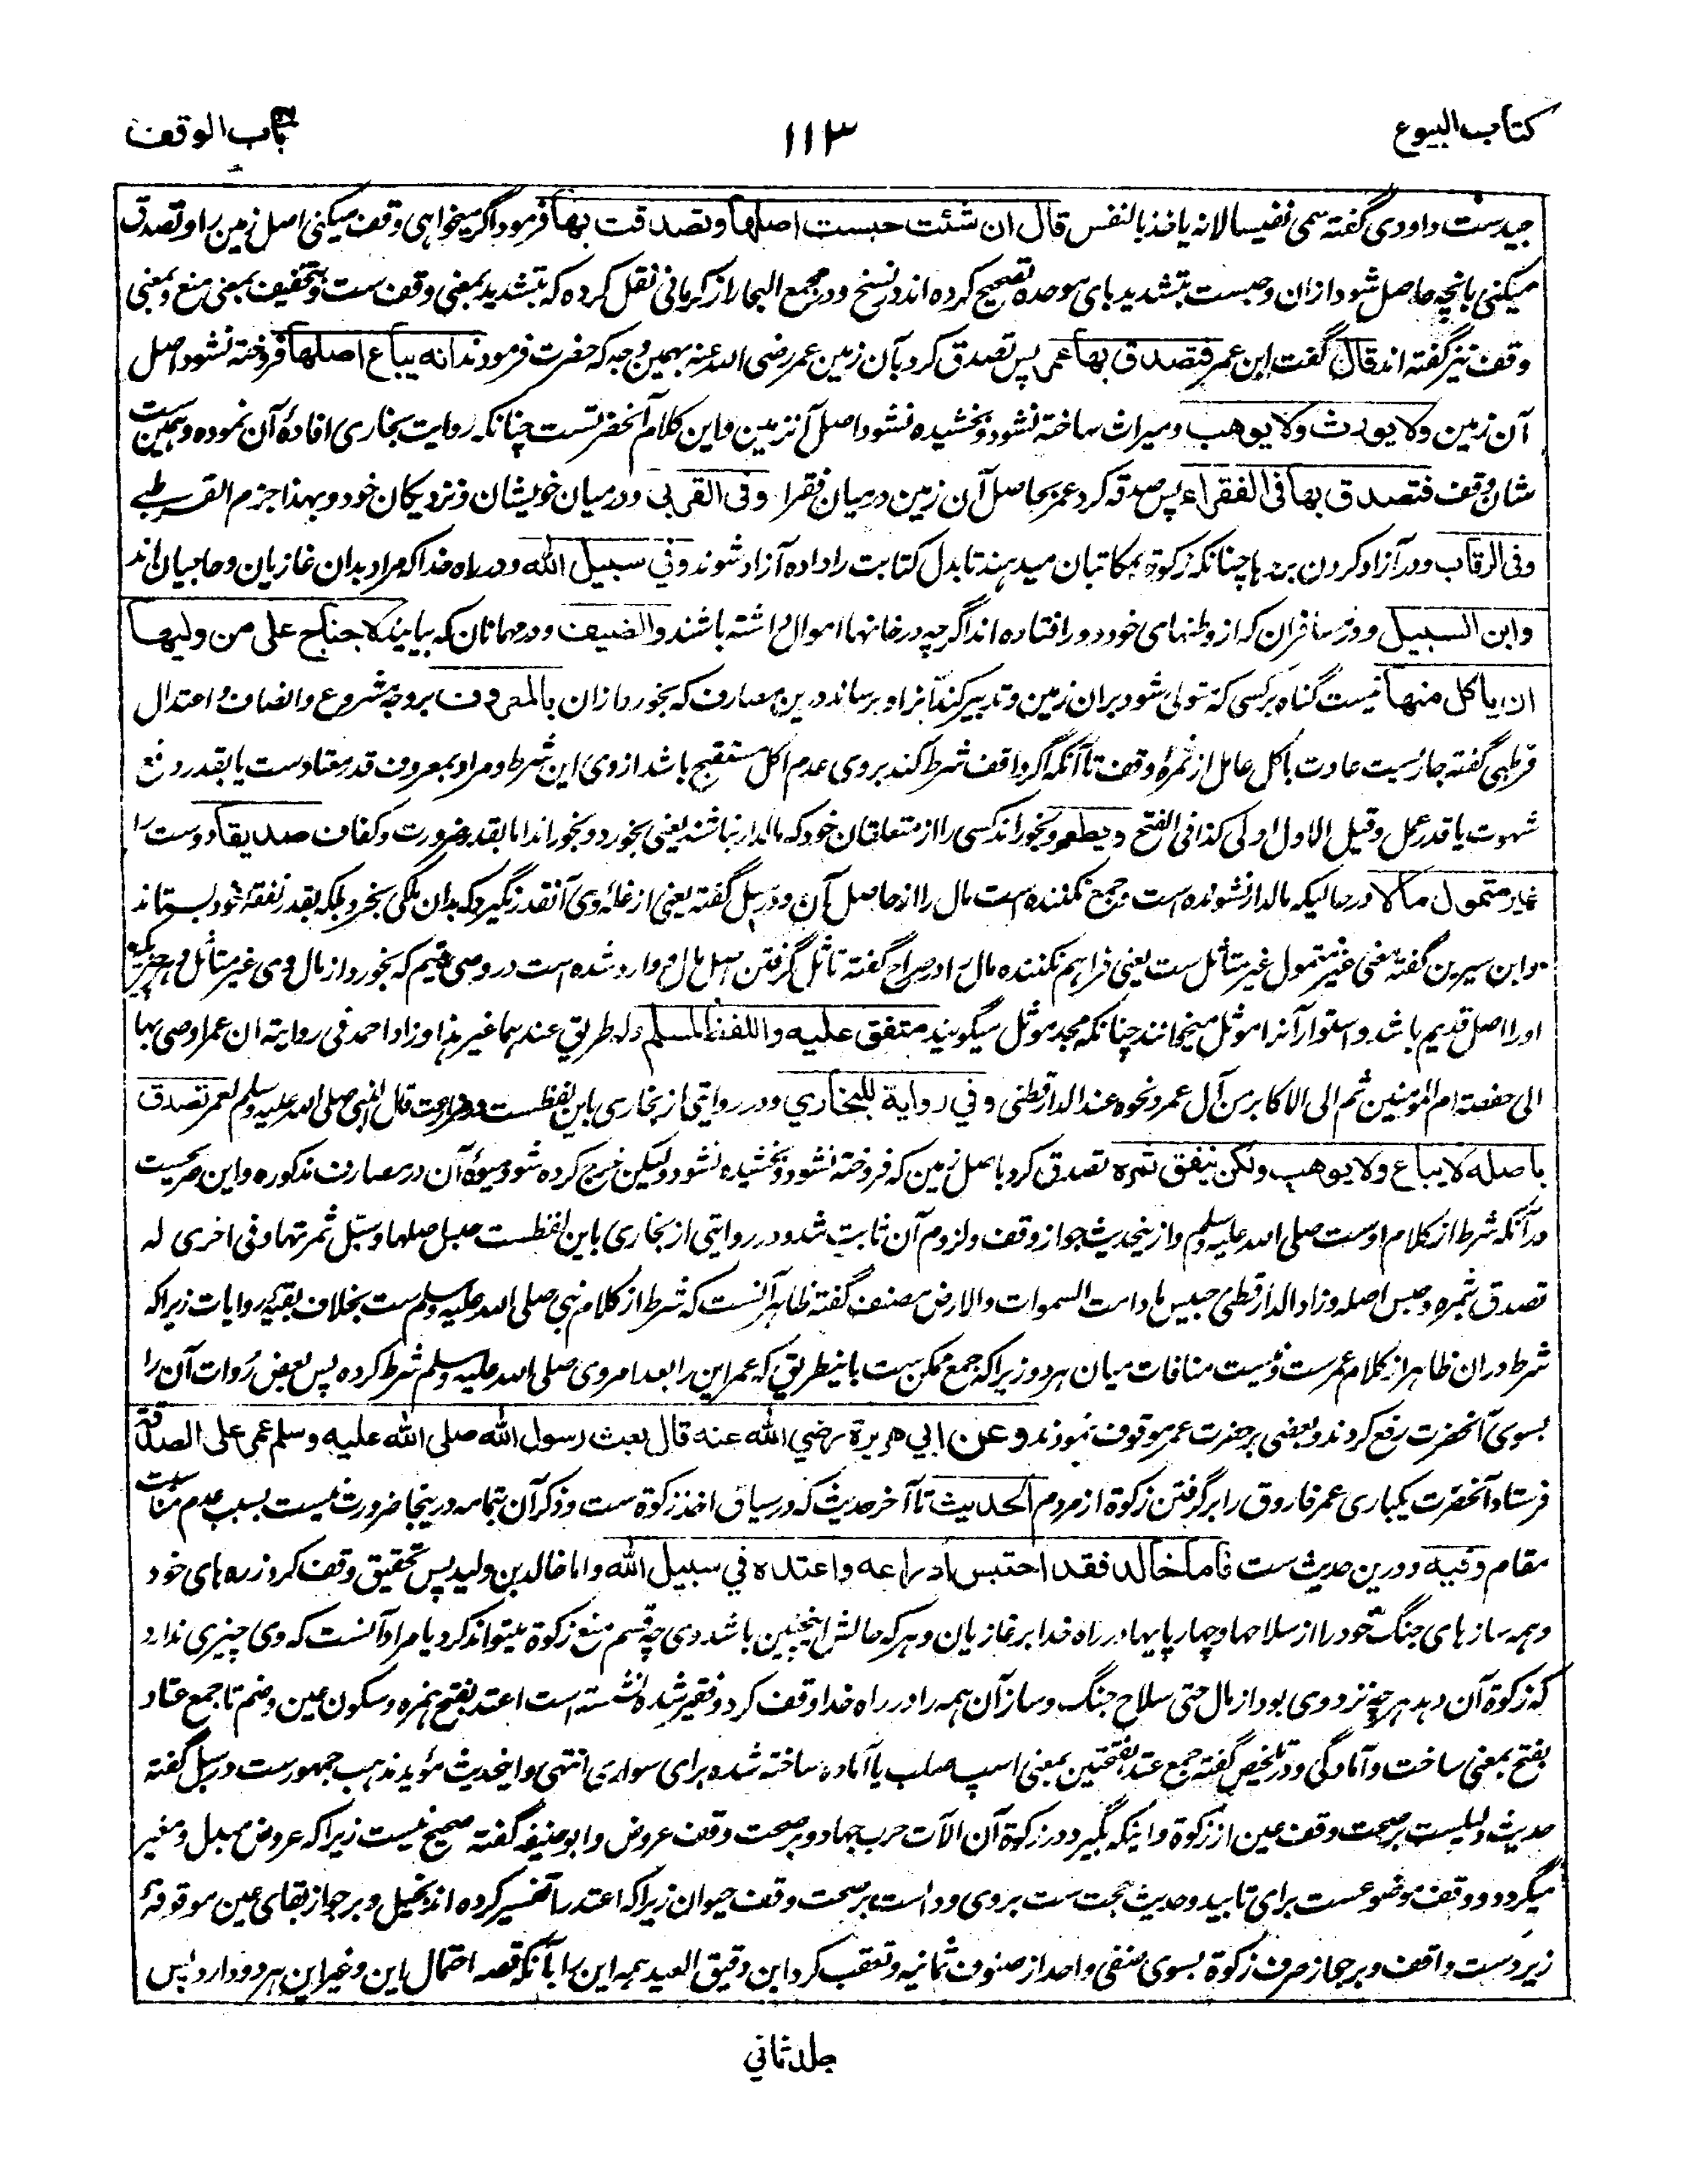 کتاب البیوع
۱۱۳
باب الوقف
جیدست داودی گفته سمی نفیسا لانه یاخذ بالنفس قال ان شئت حبست اصلها وتصدقت بها فرمود اگر میخواهی وقف میکنی اصل زمین را وتصدق
میکنی بانچه حاصل شود ازان وحبست بتشدید بای موحده تصحیح کرده اند در نسخ ودر مجمع البحار از کرمانی نقل کرده که بتشدید بمعنی وقف ست وبتخفیف بمعنی منع وبمعنی
وقف نیز گفته اند قال گفت ابن عمر فتصدق بها عمر پس تصدق کرد بآن زمین عمر رضی الله عنه بهمین وجه که حضرت فرمودند انه یباع اصلها فروخته نشود اصل
آن زمین ولا یورث ولا یوهب ومیراث ساخته نشود وبخشیده نشود اصل آنزمین واین کلام آنحضرتست چنانکه روایت بخاری افادهٔ آن نموده وهمین ست
شان وقف فتصدق بها فی الفقراء پس صدقه کرد عمر بحاصل آن زمین درمیان فقرا وفی القربی ودرمیان خویشان ونزدیکان خود وبهذا جزم القرطبے
وفی الرقاب ودر آزاد کردن برده ها چنانکه زکوة بمکاتبان میدهند تا بدل کتابت را داده آزاد شوند وفي سبیل الله ودر راه خدا که مراد بدان غازیان وحاجیان اند
وابن السبیل ودر مسافران که از وطنهای خود دور افتاده اند اگرچه در خانها اموال داشته باشند والضیف ودر مهمانان که بیایند لا جناح علی من ولیها
ان یاکل منها نیست گناه بر کسی که متولی شود بران زمین وتدبیر کند آنرا وبرساند درین مصارف که بخورد ازان بالمعروف بروجه مشروع وانصاف واعتدال
قرطبی گفته جاریست عادت باکل عامل از ثمرهٔ وقف تا آنکه اگر واقف شرط کند بروی عدم اکل مستقبح باشد ازوی این شرط ومراد بمعروف قدر معتادست یا بقدر دفع
شهوت یا قدر عمل وقیل الاول اولی کذا فی الفتح ویطعم وبخوراند کسی را از متعلقان خود که مالدار نباشند یعنی بخورد وبخوراند اما بقدر ضرورت وکفاف صدیقا دوست را
غیر متمول مالا در حالیکه مالدار نشونده است وجمع نکننده است مال را از حاصل آن ودر سبل گفته یعنی از غلهٔ وی آنقدر نگیرد که بدان ملکی بخرد بلکه بقدر نفقهٔ خود بستاند
وابن سیرین گفته معنی غیر متمول غیر متأثل ست یعنی فراهم نکننده مال را در صراح گفته تأثل گرفتن اصل مال ووارد شده است در وصی یتیم که بخورد از مال وی غیر متأثل وهر چیزیکه
او را اصل قدیم باشد واستوار آنرا موثل میخوانند چنانکه مجد موثل میگویند متفق علیه واللفظ لمسلم وله طریق عندهما غیر هذا وزاد احمد فی روایة ان عمر اوصی بها
الی حفصة ام المؤمنین ثم الی الاکابر من آل عمر ونحوه عند الدارقطنی وفي روایة للبخاري ودر روایتی از بخاری باین لفظست قال النبی صلی الله علیه وسلم لعمر تصدق
باصله لا یباع ولا یوهب ولکن ینفق ثمره تصدق کرد باصل زمین که فروخته نشود وبخشیده نشود ولیکن خرج کرده شود میوهٔ آن در مصارف مذکوره واین صریحست
درآنکه شرط از کلام اوست صلی الله علیه وسلم وازینحدیث جواز وقف ولزوم آن ثابت شد ودر روایتی از بخاری باین لفظست حبس اصلها وسبّل ثمرتها وفی اخری له
تصدق بثمره وحبس اصله وزاد الدارقطنی حبیس ما دامت السموات والارض مصنف گفته ظاهر آنست که شرط از کلام نبی صلی الله علیه وسلم ست بخلاف بقیهٔ روایات زیراکه
شرط دران ظاهرا از کلام عمرست ونیست منافات میان هر دو زیراکه جمع ممکن ست باینطریق که عمر این را بعد امر وی صلی الله علیه وسلم شرط کرده پس بعض رُوات آن را
بسوی آنحضرت رفع کردند وبعضی بر حضرت عمر موقوف نمودند وعن ابي هریرة رضي الله عنه قال بعث رسول الله صلی الله علیه وسلم عمر علی الصدقة
فرستاد آنحضرت یکباری عمر فاروق را بر گرفتن زکوة از مردم الحدیث تا آخر حدیث که در سیاق اخذ زکوة ست وذکر آن بتمامه درینجا ضرورت نیست بسبب عدم مناسبت
مقام وفیه ودرین حدیث ست فاما خالد فقد احتبس ادراعه واعتده في سبیل الله واما خالد بن ولید پس تحقیق وقف کرد زره های خود
وهمه سازهای جنگ خود را از سلاحها وچهارپایها در راه خدا بر غازیان وهرکه حالش اینچنین باشد وی چه قسم منع زکوة میتواند کرد یا مراد آنست که وی چیزی ندارد
که زکوة آن دهد هرچه نزد وی بود از مال حتی سلاح جنگ وساز آن همه را در راه خدا وقف کرد وفقیر شده نشسته است اعتد بفتح همزه وسکون عین وضم تا جمع عتاد
بفتح بمعنی ساخت وآمادگی ودر تلخیص گفته جمع عتد بفتحتین بمعنی اسپ صلب یا آماده ساخته شده برای سواری انتهی واینحدیث مؤید مذهب جمهورست در سبل گفته
حدیث دلیلست بر صحت وقف عین از زکوة واینکه بگیرد در زکوة آن آلات حرب جهاد وبر صحت وقف عروض وابو حنیفه گفته صحیح نیست زیراکه عروض مبدل ومغیر
میگردد ووقف موضوعست برای تابید وحدیث حجت ست بروی ودالست بر صحت وقف حیوان زیراکه اعتد را تفسیر کرده اند بخیل وبر جواز بقای عین موقوفهٔ
زیر دست واقف وبر جواز صرف زکوة بسوی صنفی واحد از صنوف ثمانیه وتعقب کرد ابن دقیق العید بهمه این را بآنکه قصه احتمال این وغیر این هر دو دارد پس
جلد ثاني